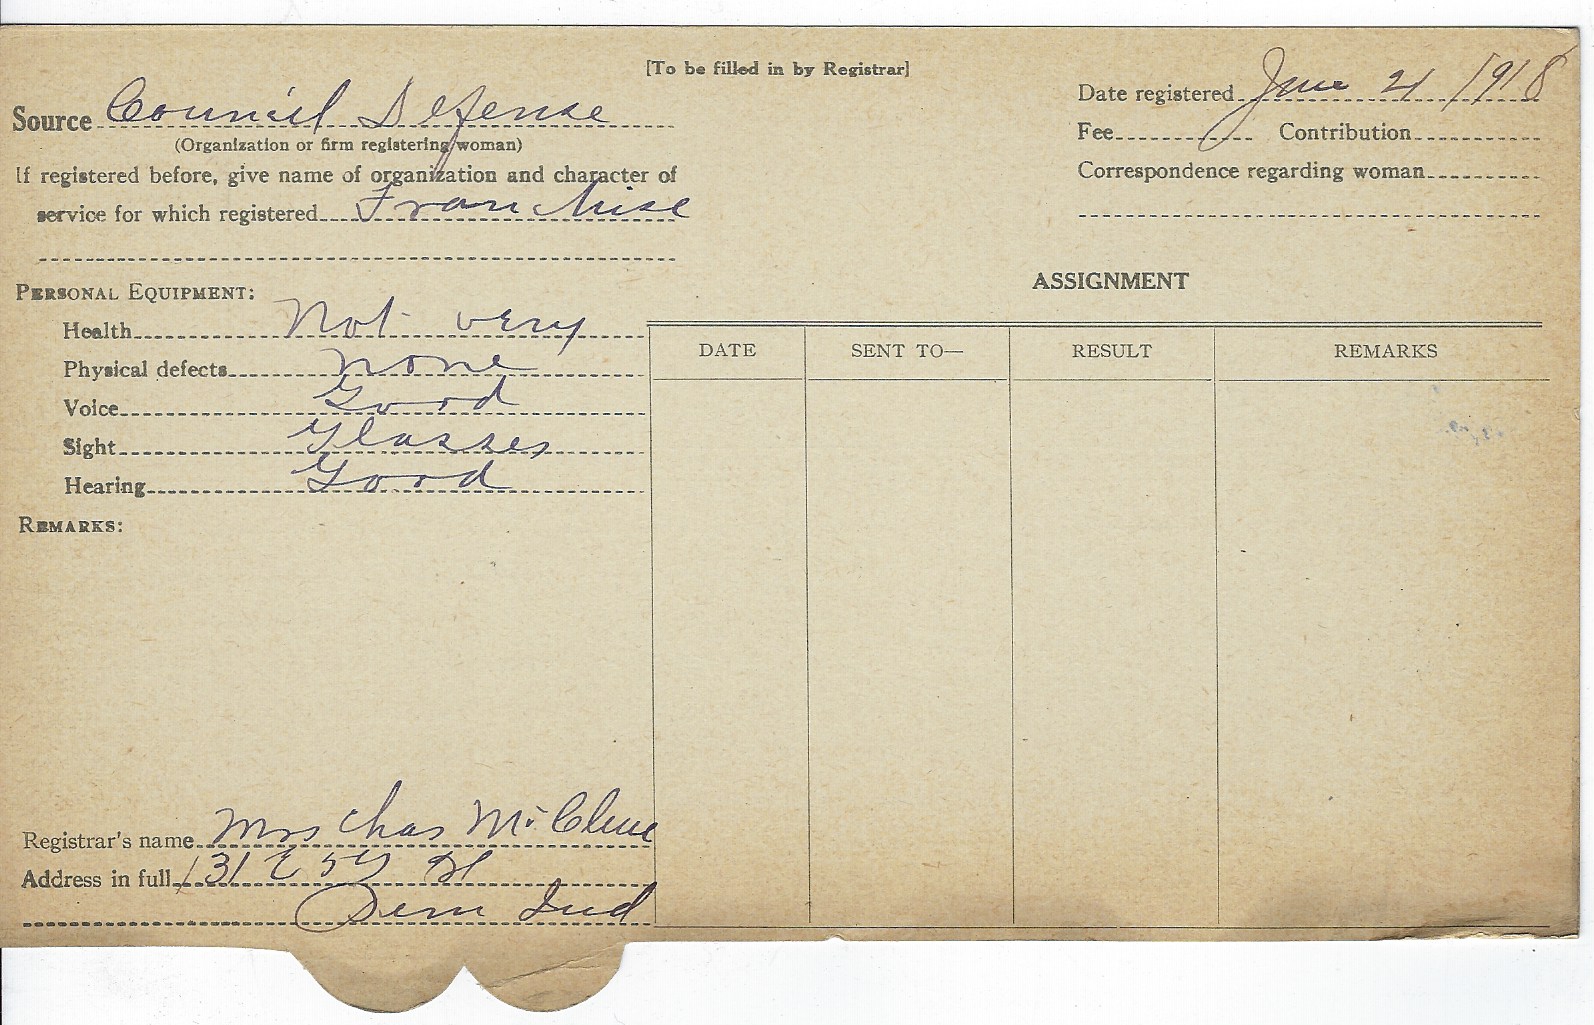 [To be filled in by Registrar]
Source Council Defense
(Organization or firm registering woman)
If registered before, give name of organization and character of
service for which registered Franchise
Date registered June 21 1918
Fee Contribution
Correspondence regarding woman
PERSONAL EQUIPMENT:
Health Not very
Physical defects none
Voice Good
Sight Glasses
Hearing Good
REMARKS:
ASSIGNMENT
DATE SENT TO— RESULT REMARKS
Registrar's name Mrs Chas McClure
Address in full 131 E St
Ind